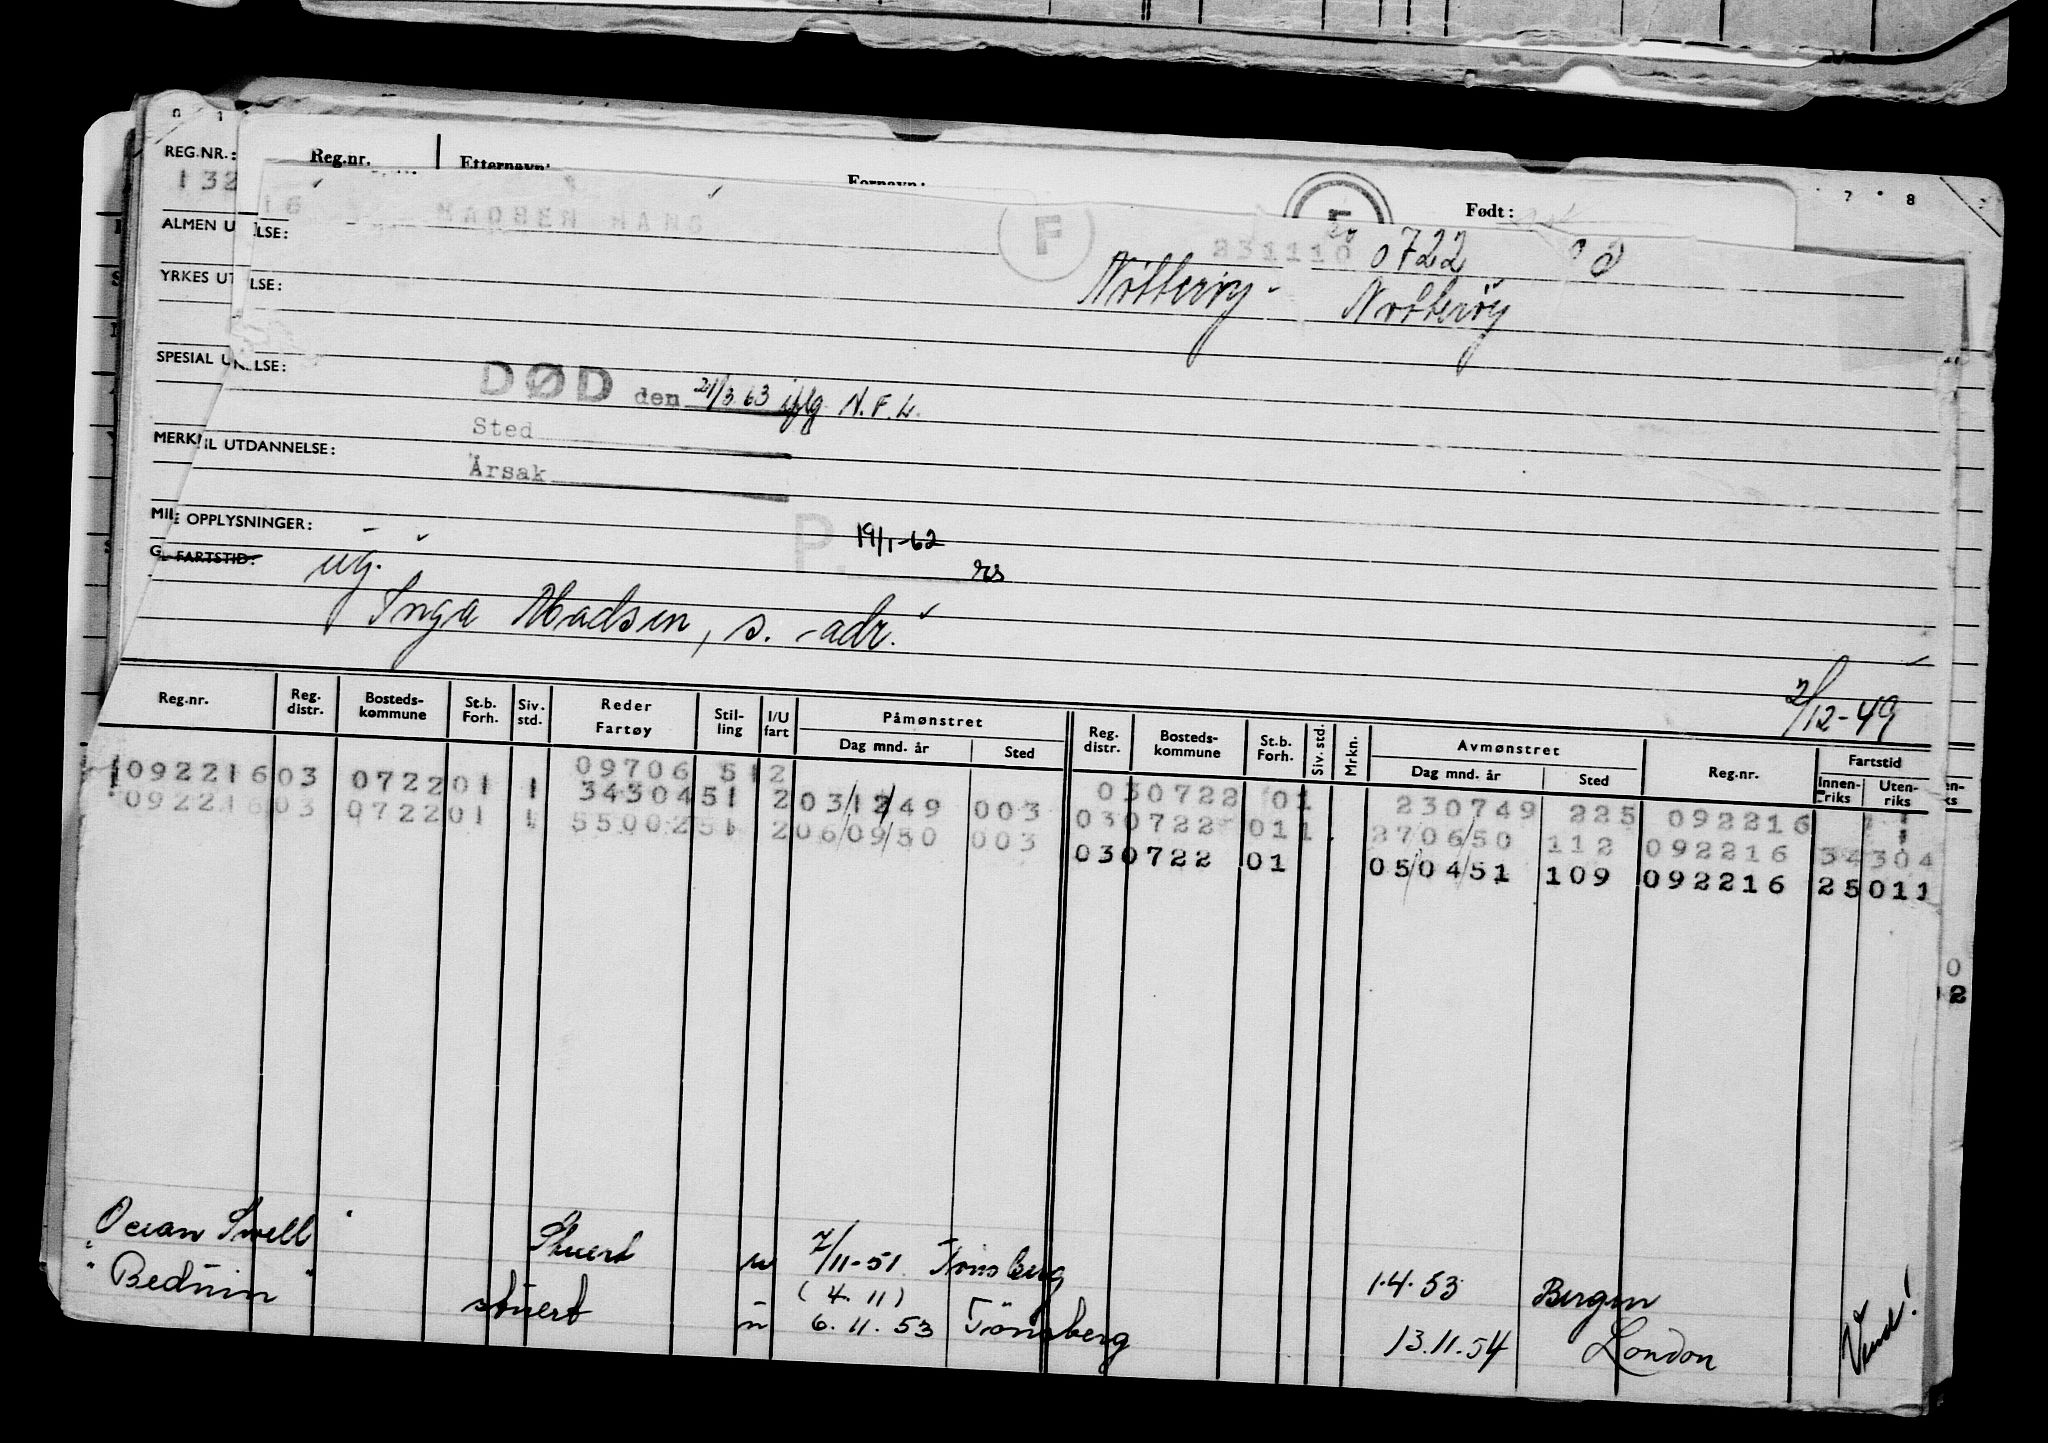 REG.NR.: Reg.nr. Etternavn: Fornavn: Født:
132
16 MADSEN HANS F F 231110 0722
ALMEN U LSE:
Nøtterøy Nøtterøy
YRKES UT LSE:
SPESIAL U LSE:
DØD den 21/3 63 iflg N.F.L.
Sted
MERK IL UTDANNELSE:
Årsak
MIL E OPPLYSNINGER:
P. 19/1-62
G FARTSTID:
ug.
Inga Madsen, s. adr.
2/12-49
Reg.nr. Reg. distr. Bosteds-kommune St.b. Forh. Siv. std. Reder Fartøy Stil-ling I/U fart Påmønstret Dag mnd. år Sted Reg. distr. Bosteds-kommune St.b. Forh. Siv. std. Mrkn. Avmønstret Dag mnd. år Sted Reg.nr. Fartstid Innen-riks Uten-riks
09706 512 030722 01 230749 225 092216
092216 03 0722 01 1 34304 51 2 03/12/49 003 030722 01 1 270650 112 092216 34304
092216 03 0722 01 1 55002 51 2 06/09/50 003 030722 01 05/04/51 109 092216 25011
"Ocean Swell" Stuert u 7/11-51 Tønsberg 1.4.53 Bergen
(4.11)
"Beduin" stuert u 6.11.53 Tönsberg 13.11.54 London
Vend!